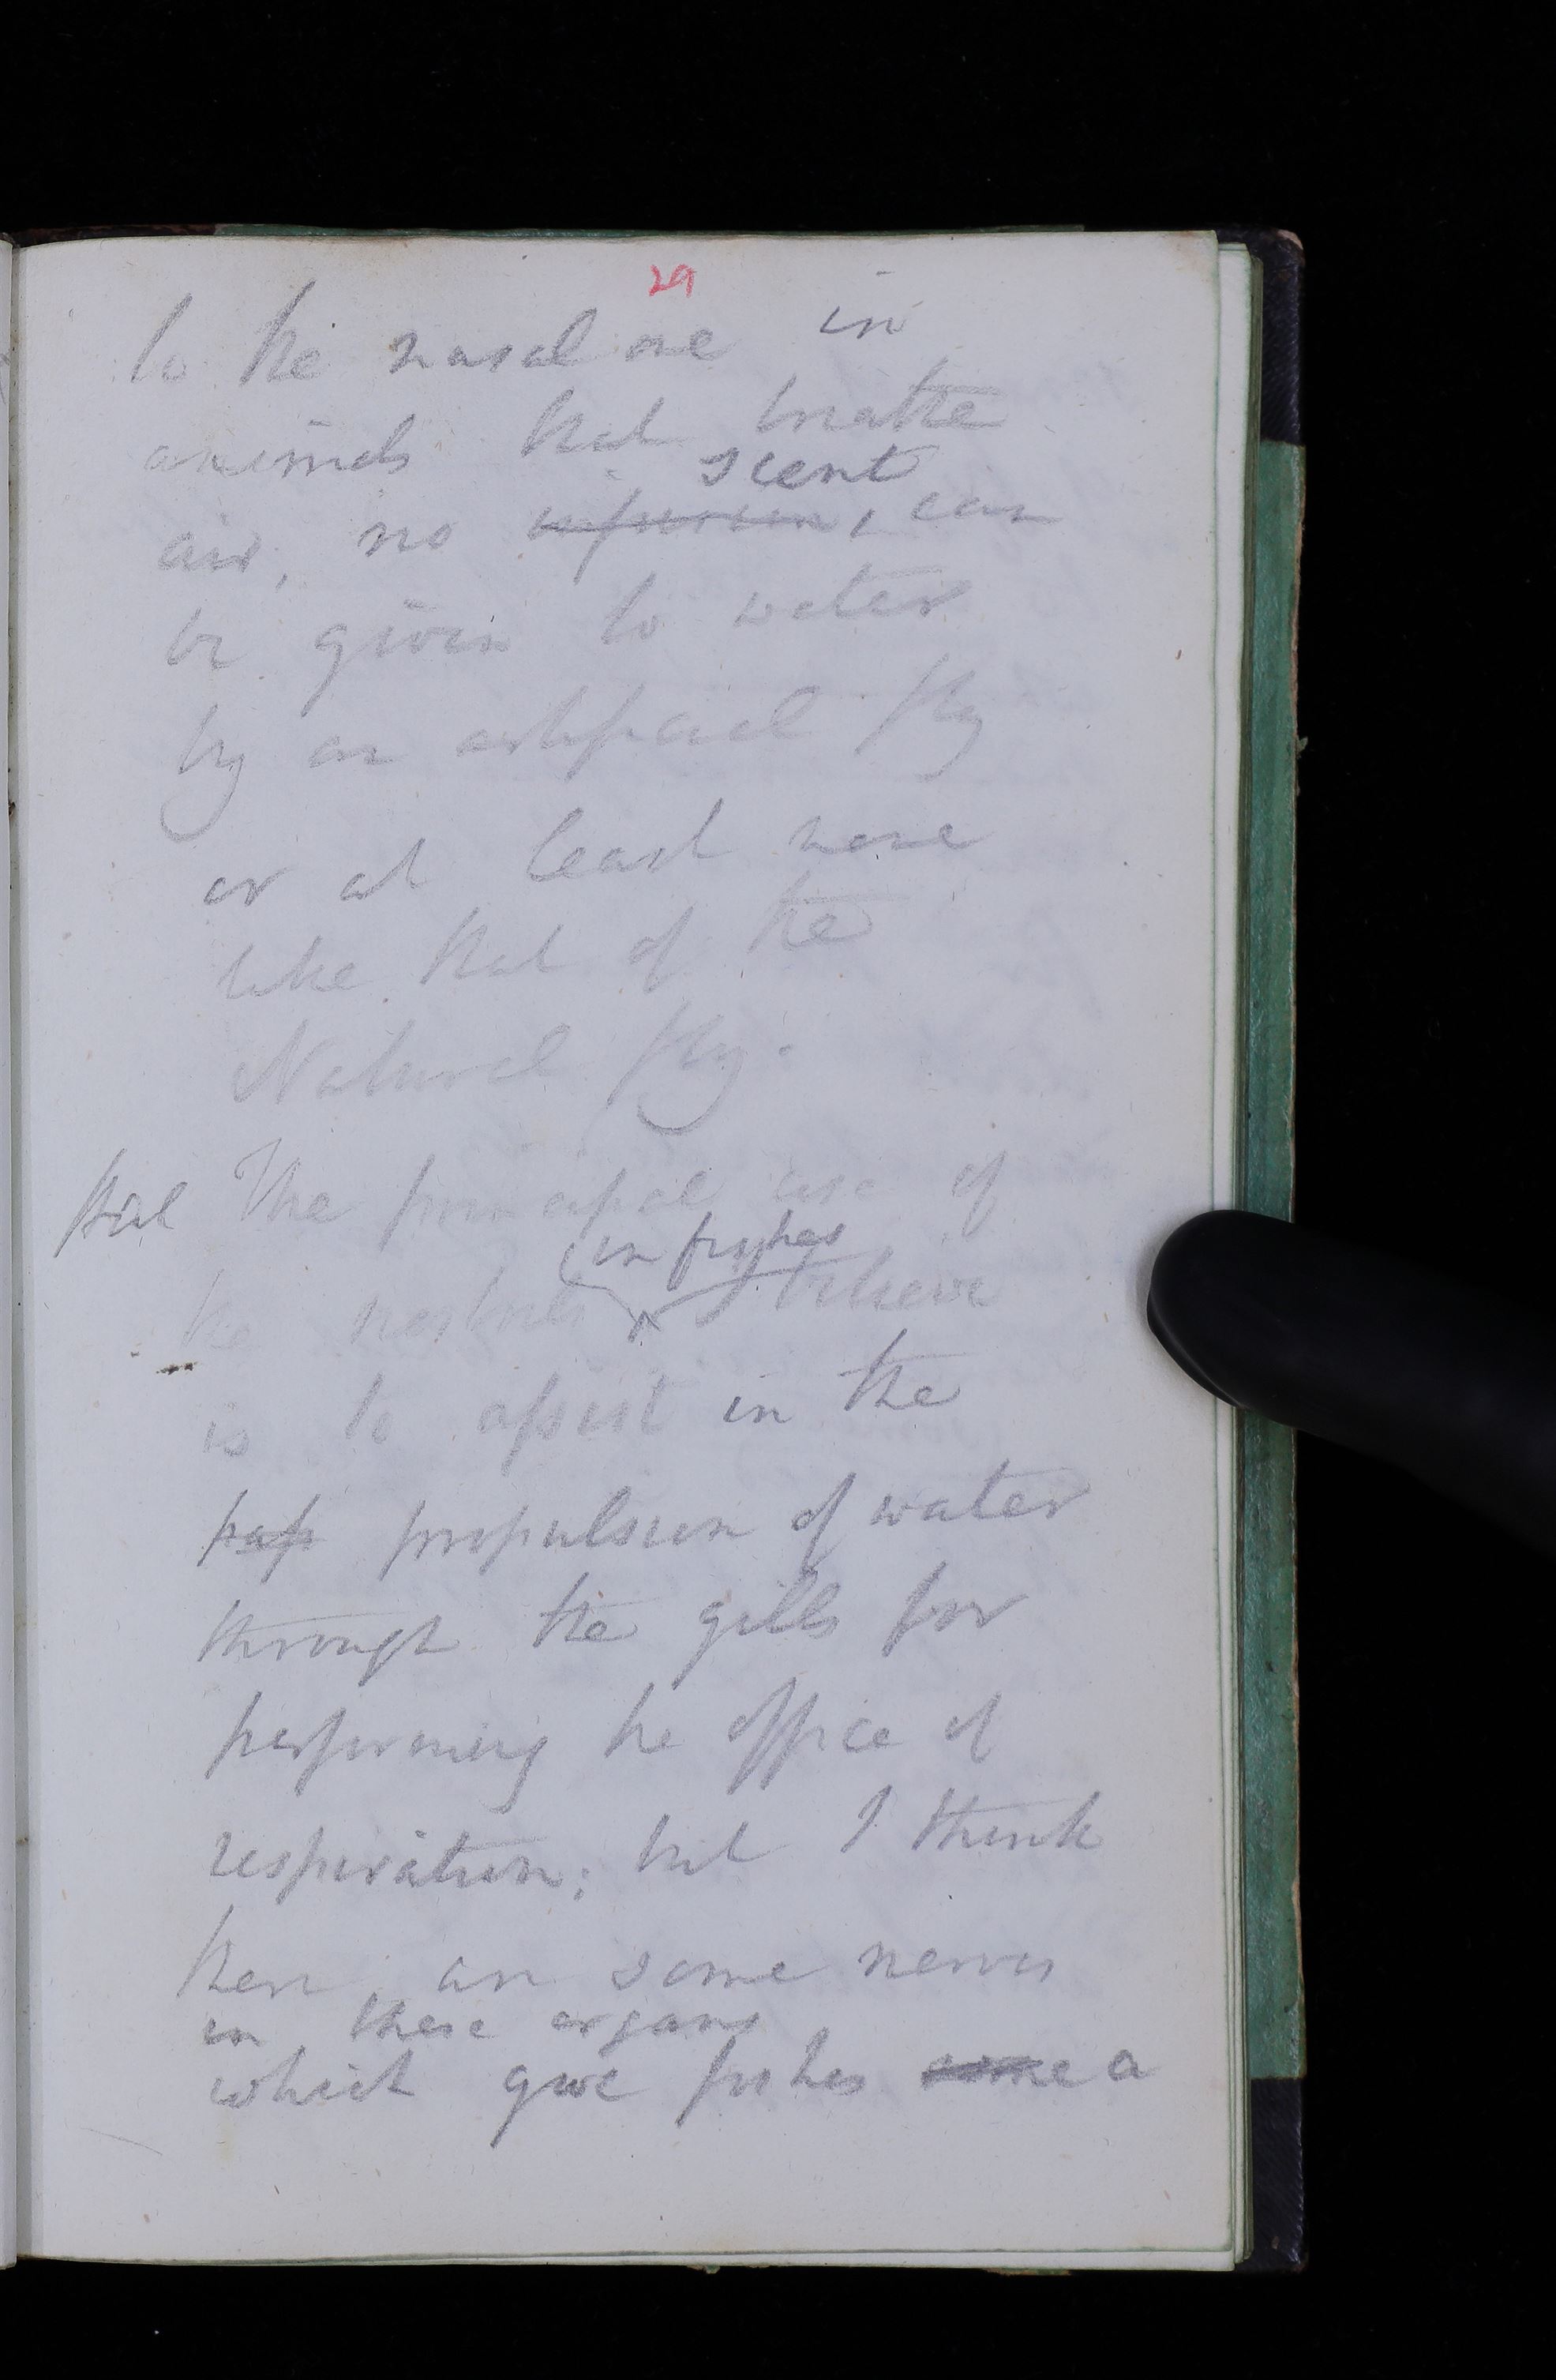 29
to the nasal one in
animals that breathe
scent
air, no infusion, can
be given to water
by an artificial fly
or at least none
like that of the
Natural fly.
Hal The principal use of
in fishes
the nostrils ^ I believe
is to assist in the
pass propulsion of water
through the gills for
performing the office of
respiration; but I think
there are some nerves
in these organs
which give fishes some a